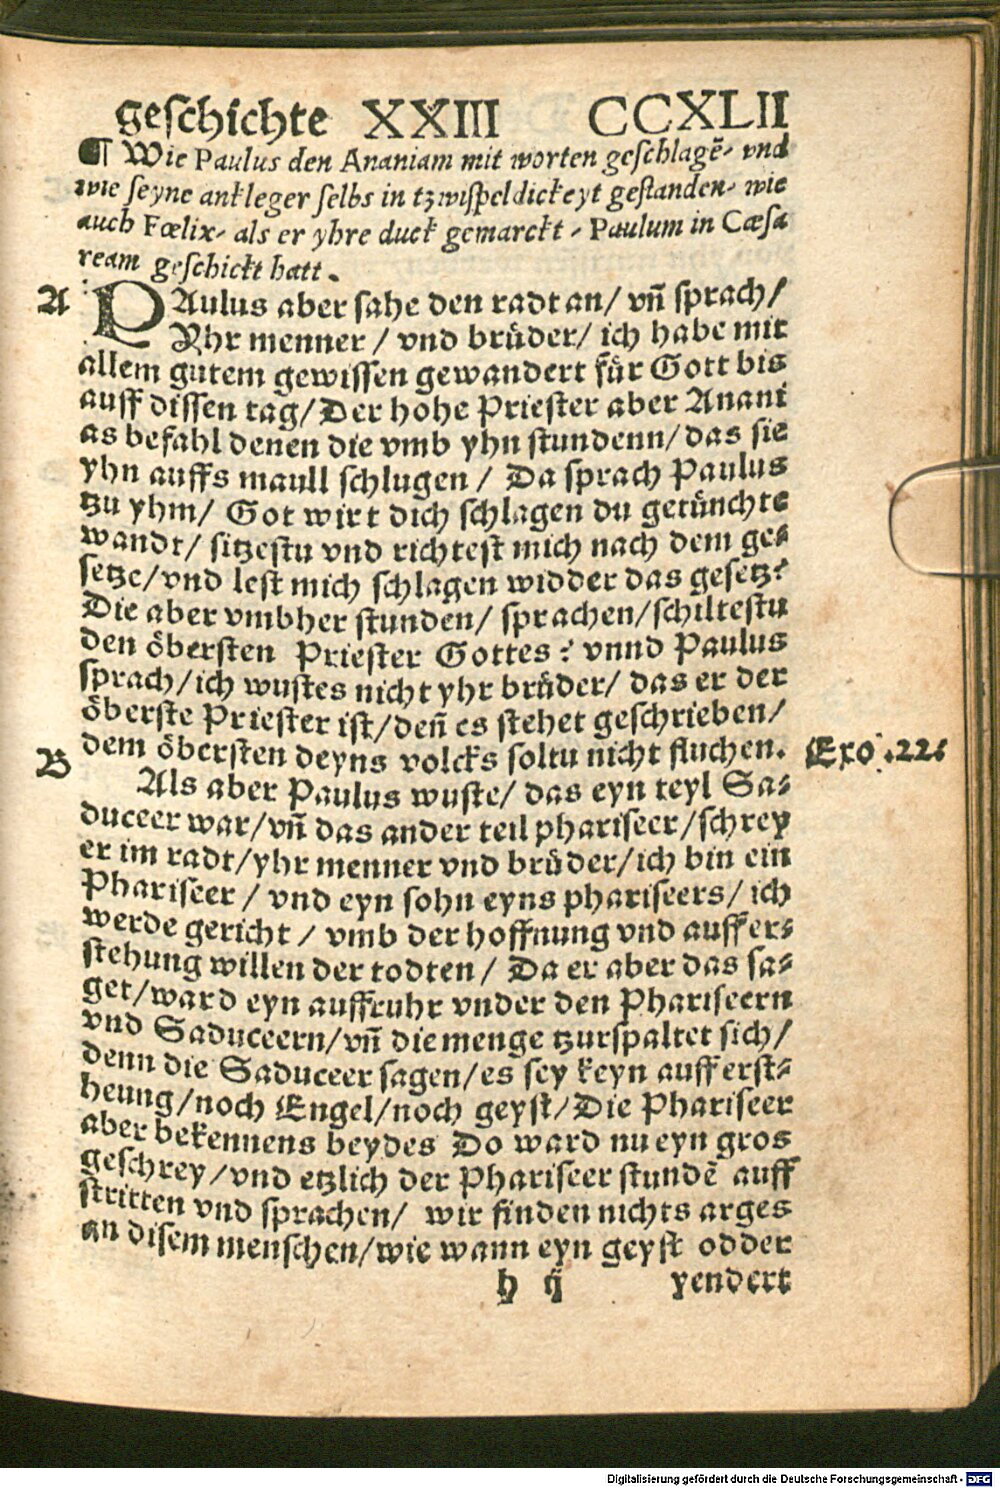 geschichte XXIII CCXLII
¶ Wie Paulus den Ananiam mit worten geschlagē, vnd
wie seyne ankleger selbs in tzwispeldickeyt gestanden, wie
auch Fœlix, als er yhre duck gemarckt, Paulum in Cæsa
ream geschickt hatt.
A PAulus aber sahe den radt an/ vn̄ sprach/
Yhr menner/ vnd brüder/ ich habe mit
allem gutem gewissen gewandert für Gott bis
auff dissen tag/ Der hohe Priester aber Anani
as befahl denen die vmb yhn stundenn/ das sie
yhn auffs maull schlugen/ Da sprach Paulus
tzu yhm/ Got wirt dich schlagen du getünchte
wandt/ sitzestu vnd richtest mich nach dem ge⸗
setze/ vnd lest mich schlagen widder das gesetz?
Die aber vmbher stunden/ sprachen/ schiltestu
den öbersten Priester Gottes? vnnd Paulus
sprach/ ich wustes nicht yhr brüder/ das er der
öberste Priester ist/ den̄ es stehet geschrieben/
dem öbersten deyns volcks soltu nicht fluchen. Exo .22.
B Als aber Paulus wuste/ das eyn teyl Sa⸗
duceer war/ vn̄ das ander teil phariseer/ schrey
er im radt/ yhr menner vnd brüder/ ich bin ein
Phariseer/ vnd eyn sohn eyns phariseers/ ich
werde gericht/ vmb der hoffnung vnd auffer⸗
stehung willen der todten/ Da er aber das sa⸗
get/ ward eyn auffruhr vnder den Phariseern
vnd Saduceern/ vn̄ die menge tzurspaltet sich/
denn die Saduceer sagen/ es sey keyn aufferst⸗
heung/ noch Engel/ noch geyst/ Die Phariseer
aber bekennens beydes Do ward nu eyn gros
geschrey/ vnd etzlich der Phariseer stundē auff
stritten vnd sprachen/ wir finden nichts arges
an disem menschen/ wie wann eyn geyst odder
h ij yendert
Digitalisierung gefördert durch die Deutsche Forschungsgemeinschaft - DFG